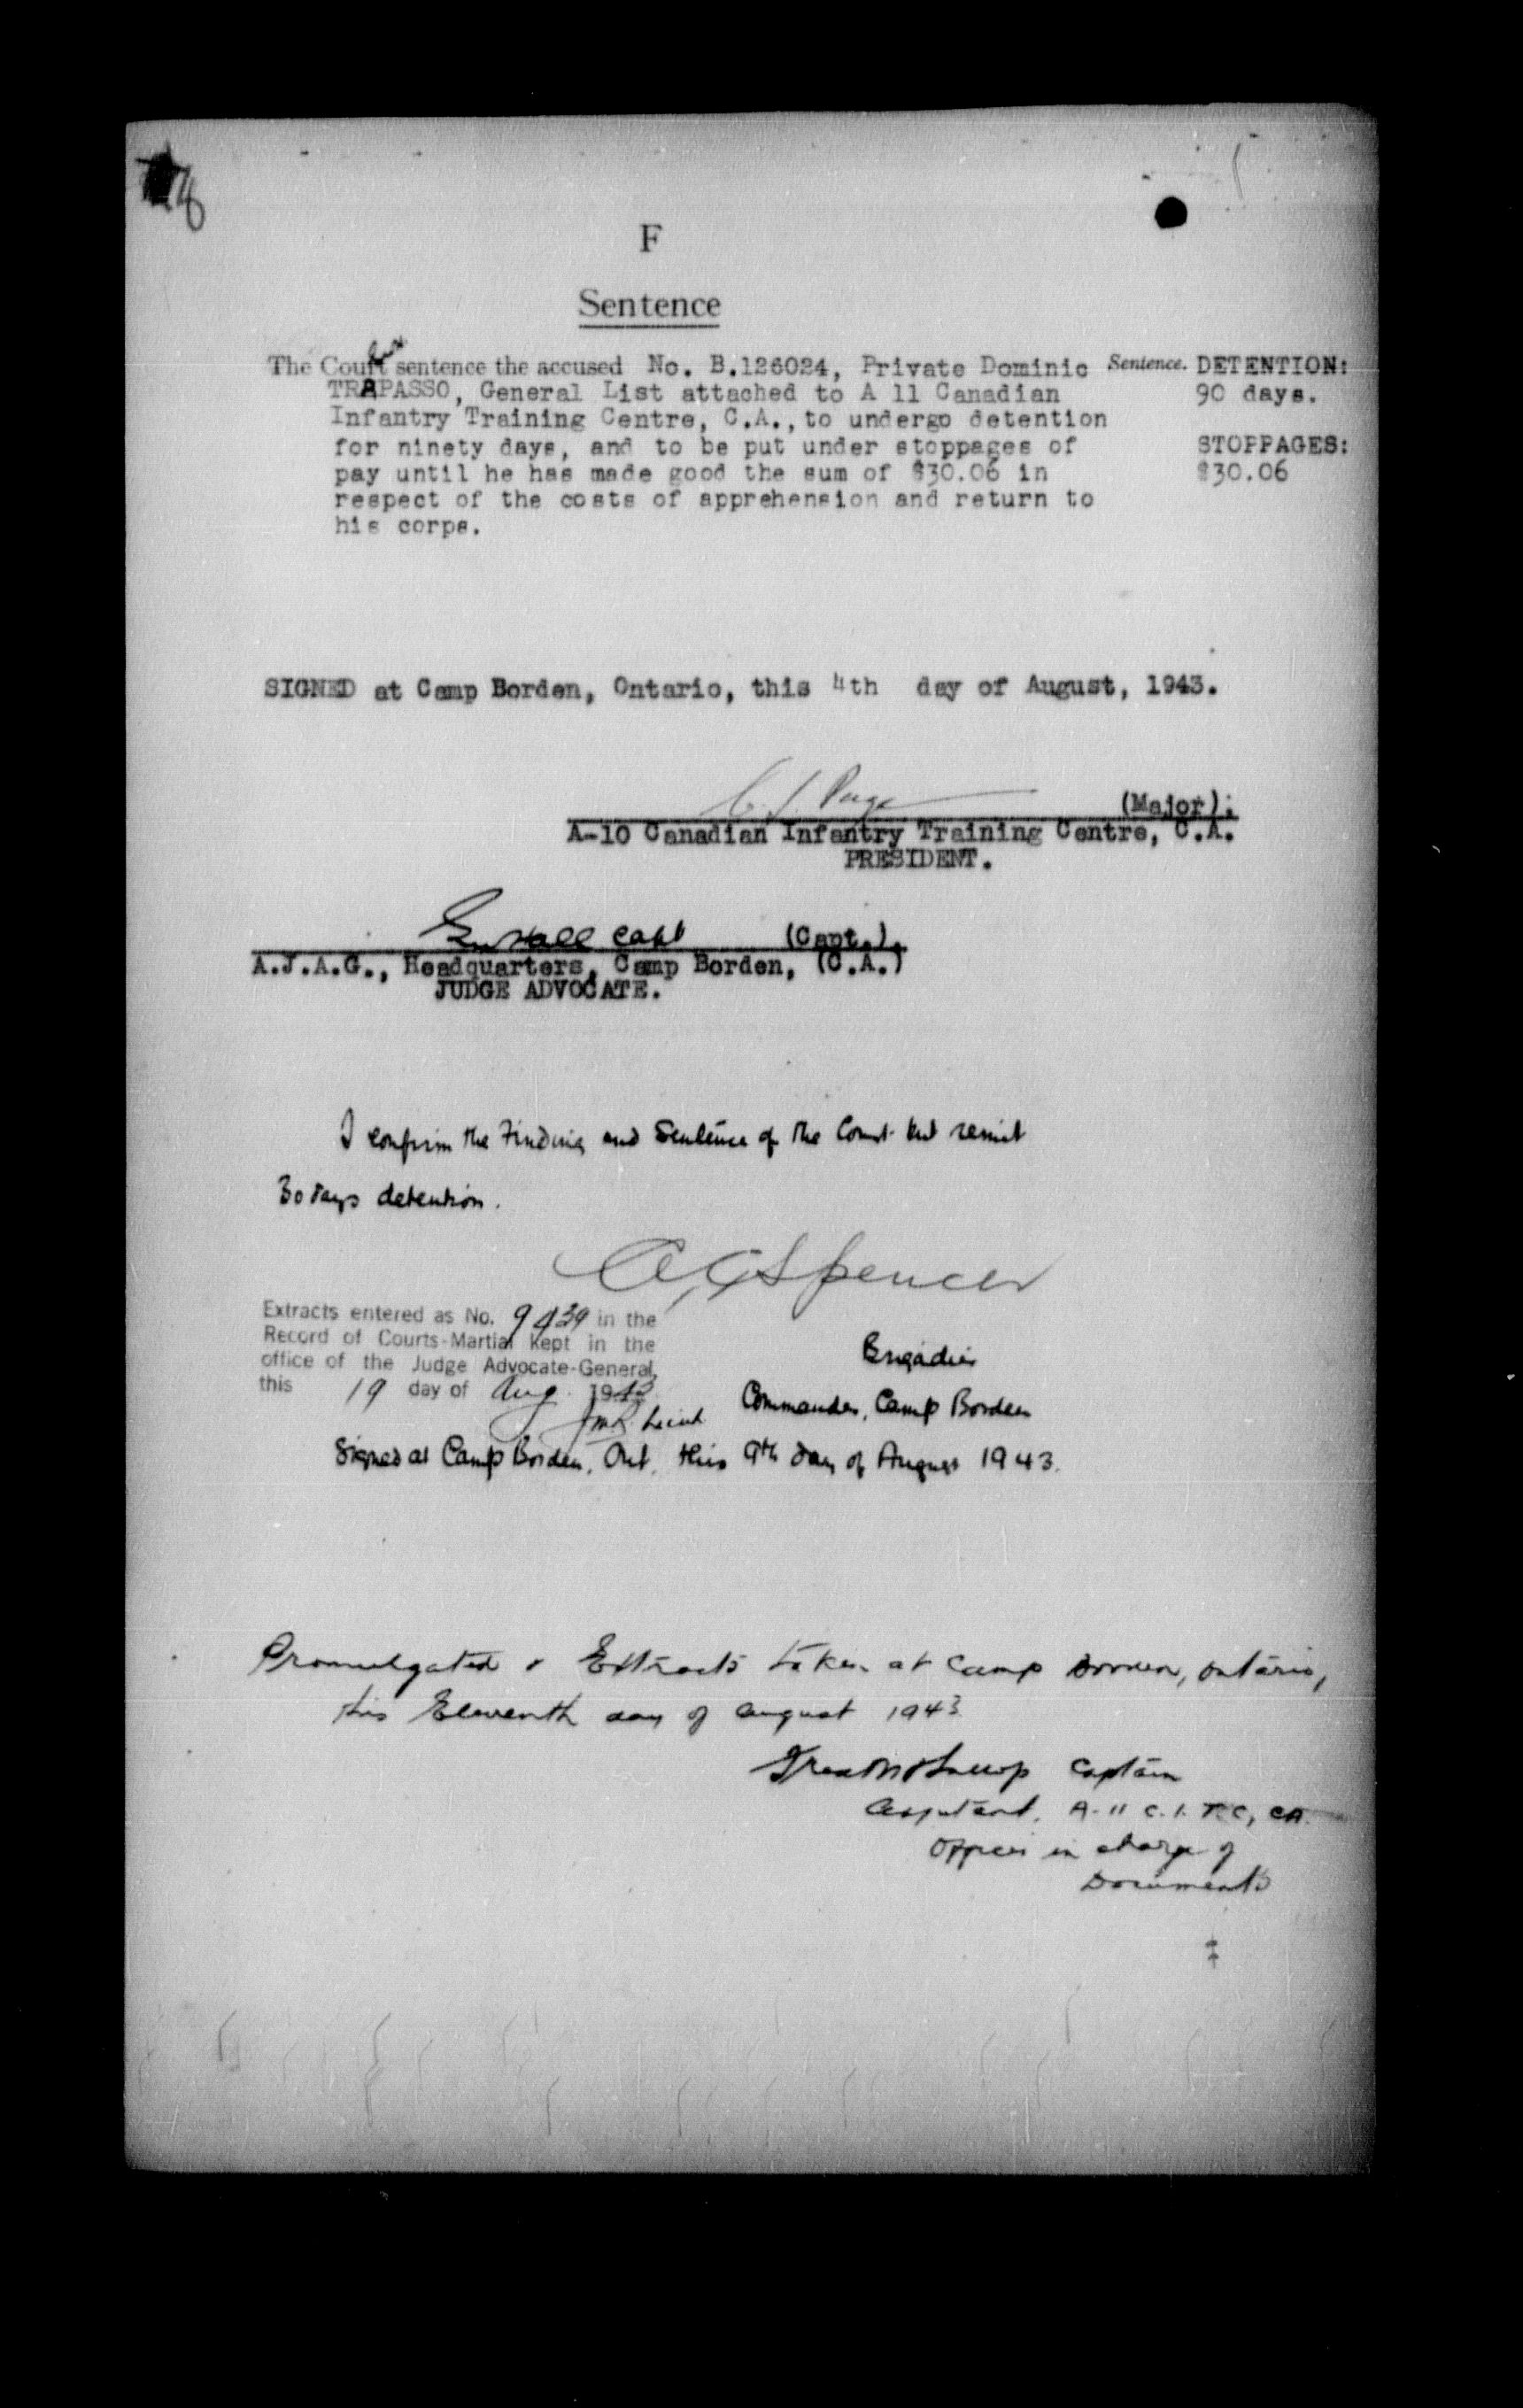 F
Sentence
The Court sentence the accused No. B.126024, Private Dominic
TRAPASSO, General List attached to A 11 Canadian
Infantry Training Centre, C.A., to undergo detention
for ninety days, and to be put under stoppages of
pay until he has made good the sum of $30.06 in
respect of the costs of apprehension and return to
his corps.
Sentence. DETENTION:
90 days.
STOPPAGES:
$30.06
SIGNED at Camp Borden, Ontario, this 4th day of August, 1943.
Page (Major),
A-10 Canadian Infantry Training Centre, C.A.
PRESIDENT.
Hall Capt (Capt.),
A.J.A.G., Headquarters, Camp Borden, (C.A.)
JUDGE ADVOCATE.
I confirm the Finding and Sentence of the Court but remit
30 days detention.
Spencer
Brigadier
Commander, Camp Borden
Extracts entered as No. 9439 in the
Record of Courts-Martial kept in the
office of the Judge Advocate-General,
this 19 day of Aug. 1943
Signed at Camp Borden, Ont. this 9th day of August 1943.
Promulgated & Extracts taken at Camp Borden, Ontario,
this Eleventh day of August 1943
Captain
Adjutant, A-11 C.I.T.C, CA.
Officer in charge of
Documents